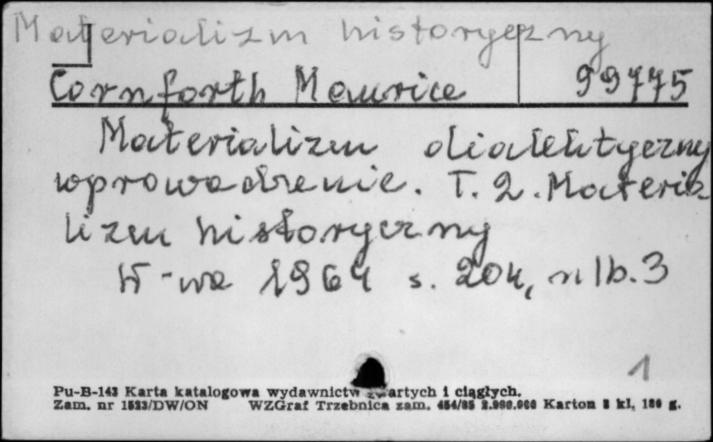 Materializm historyczny
Cornforth Maurice 99775
Materializm dialektyczny
wprowadzenie. T. 2. Materia
lizm historyczny
W-wa 1964 s. 204, nlb. 3
1
Pu-B-143 Karta katalogowa wydawnictw zwartych i ciągłych.
Zam. nr 1523/DW/ON WZGraf Trzebnica zam. 454/85 2.900.000 Karton kl. g.